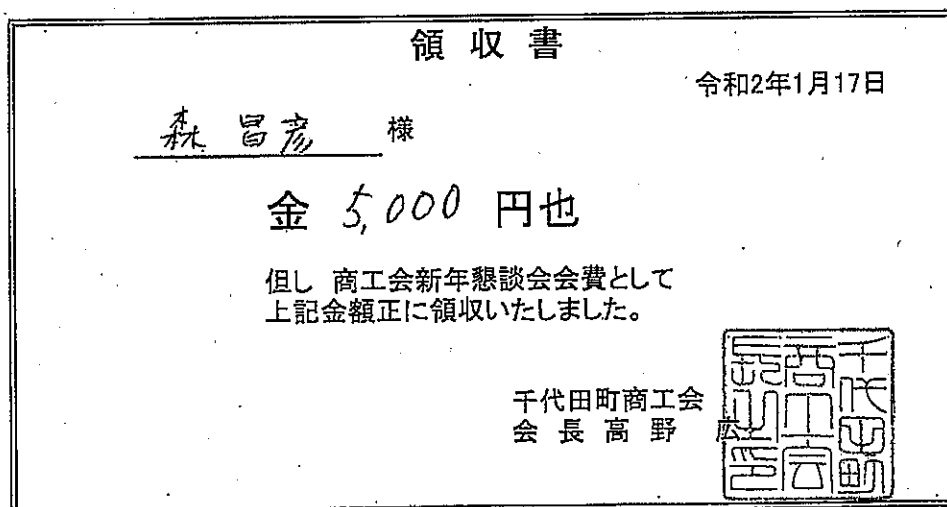 領収書
令和2年1月17日
森 昌彦 様
金 5,000 円也
但し 商工会新年懇談会会費として
上記金額正に領収いたしました。
千代田町商工会
会長 高野 広
千代田町
商工会
長之印